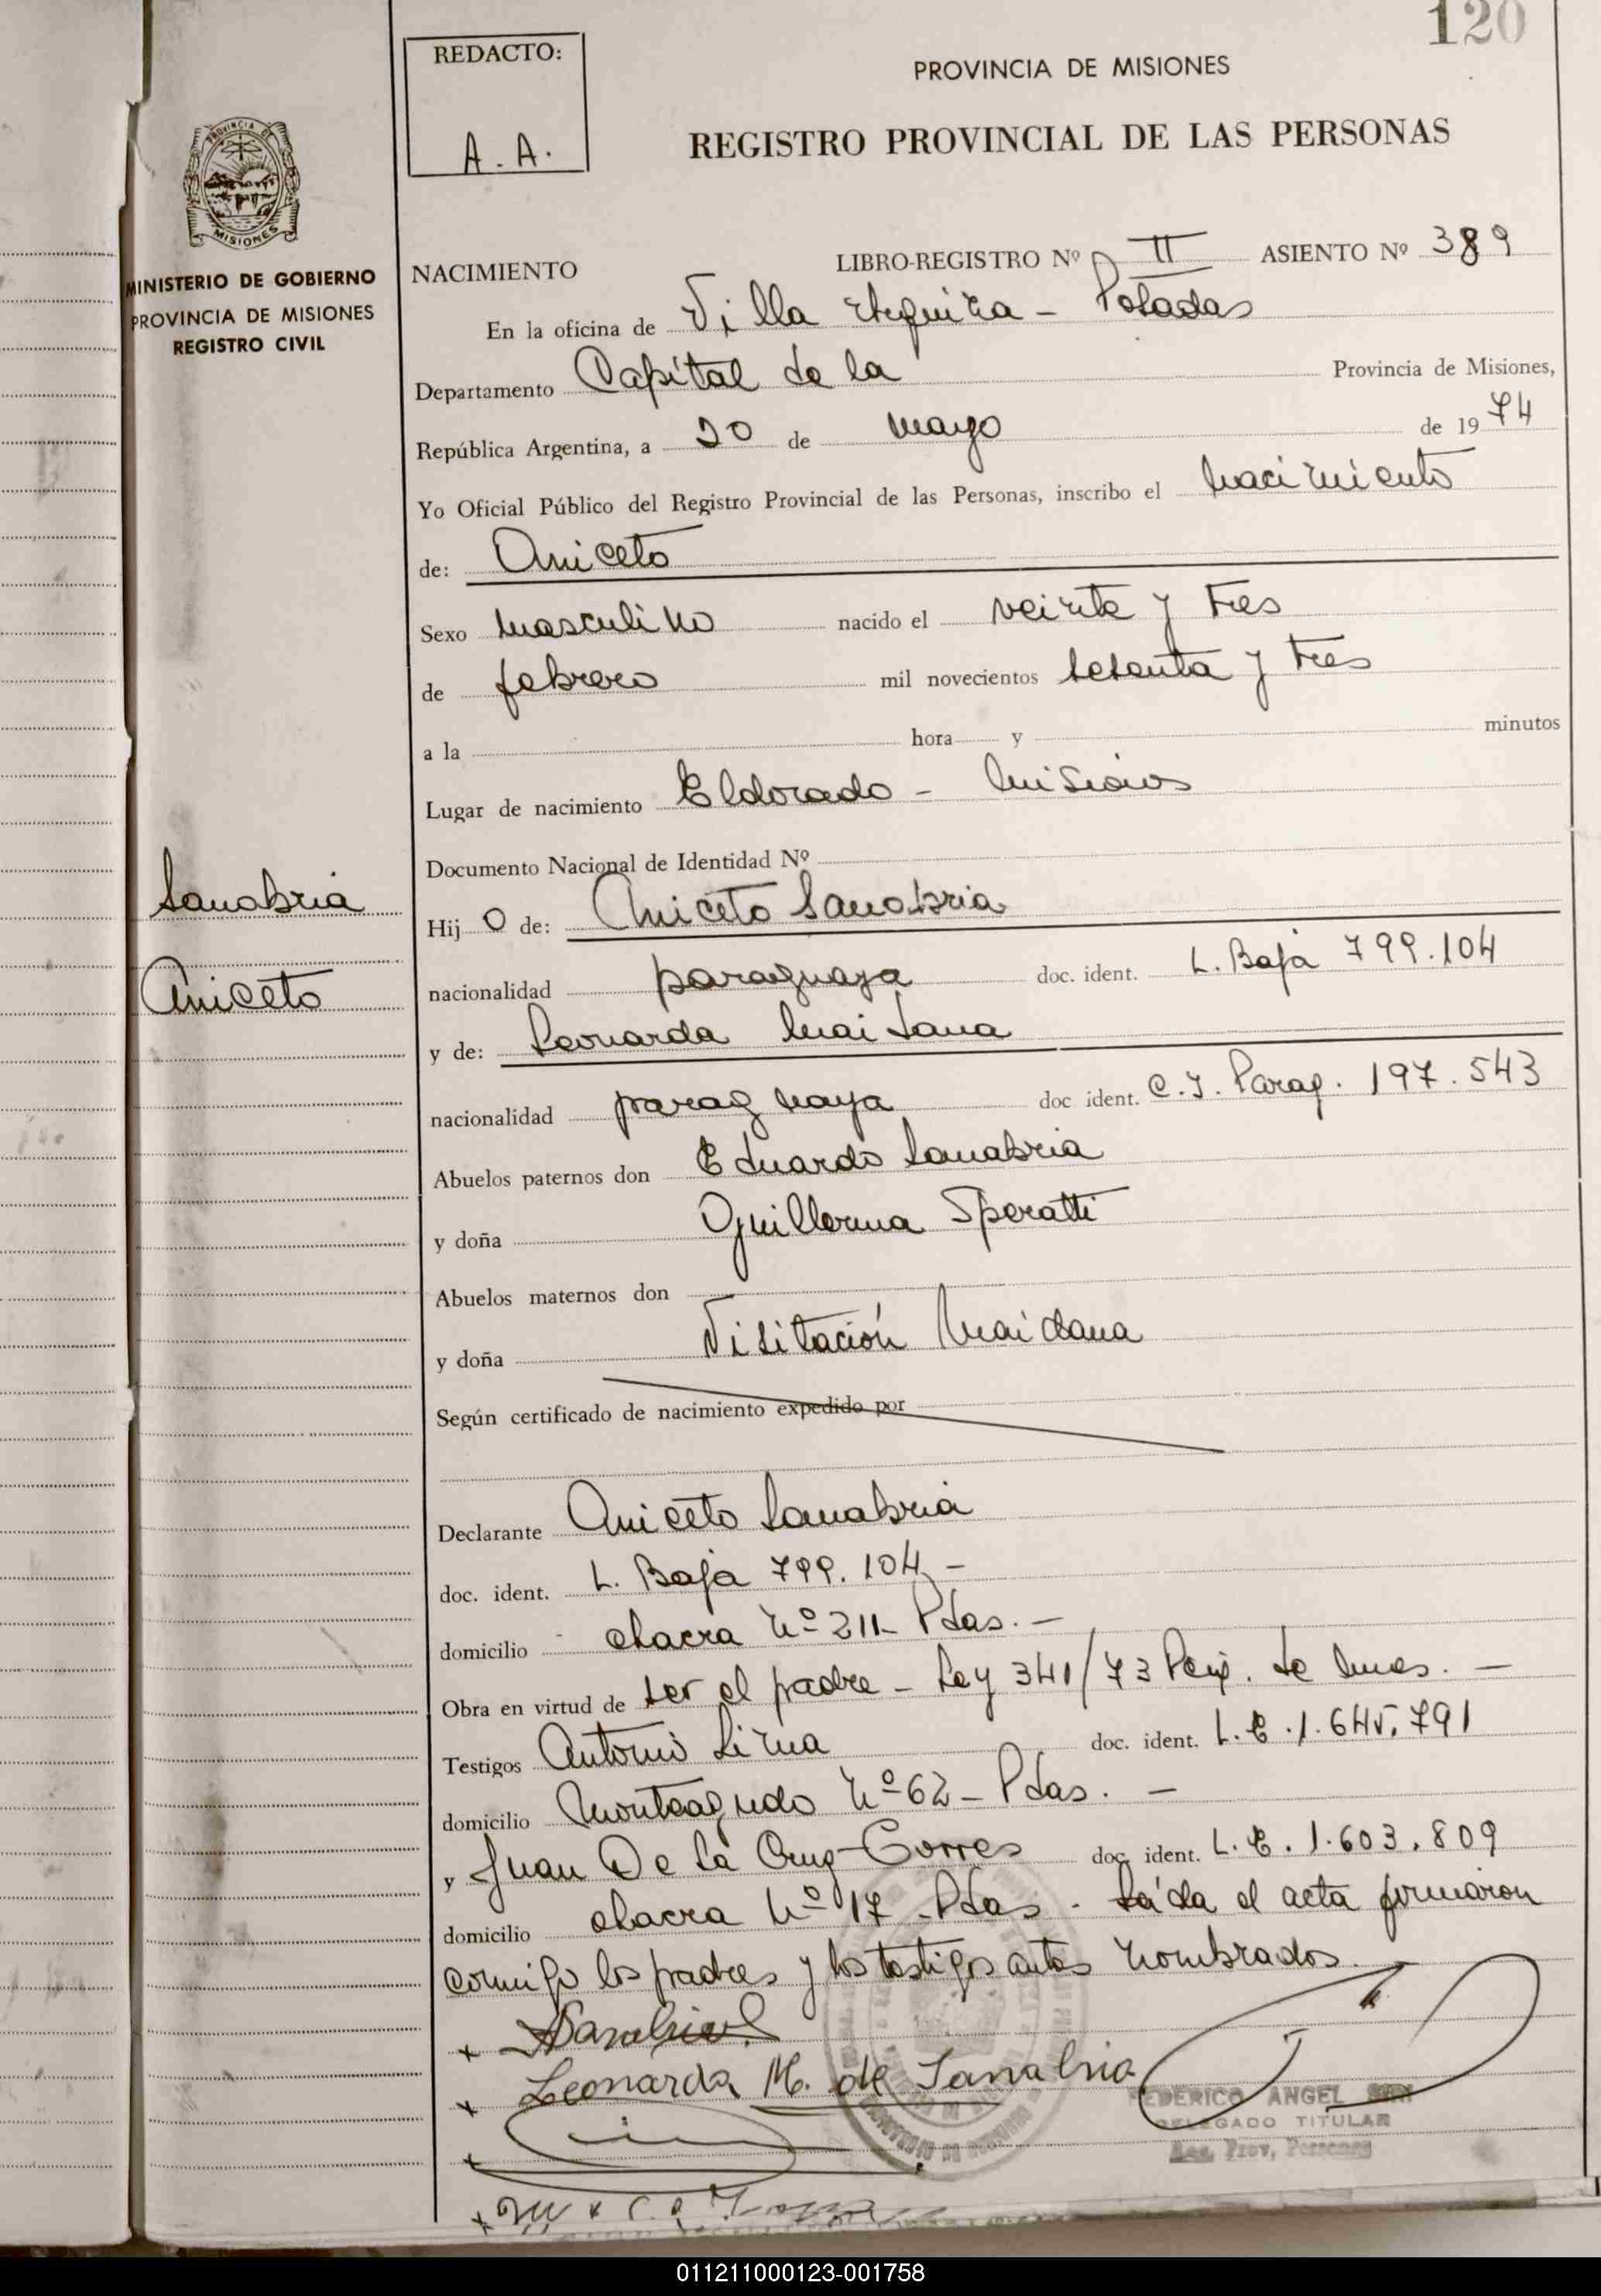 120
REDACTO:
A. A.
PROVINCIA DE MISIONES
REGISTRO PROVINCIAL DE LAS PERSONAS
PROVINCIA DE
MISIONES
MINISTERIO DE GOBIERNO
PROVINCIA DE MISIONES
REGISTRO CIVIL
NACIMIENTO LIBRO-REGISTRO Nº II ASIENTO Nº 389
En la oficina de Villa Urquiza - Posadas
Departamento Capital de la Provincia de Misiones,
República Argentina, a 20 de mayo de 1974
Yo Oficial Público del Registro Provincial de las Personas, inscribo el nacimiento
de: Aniceto
Sexo masculino nacido el veinte y tres
de febrero mil novecientos setenta y tres
a la hora y minutos
Lugar de nacimiento Eldorado - Misiones
Documento Nacional de Identidad Nº
Sanabria
Aniceto
Hijo de: Aniceto Sanabria
nacionalidad paraguaya doc. ident. L. Baja 799.104
y de: Leonarda Maidana
nacionalidad paraguaya doc ident. C.I. Parag. 197.543
Abuelos paternos don Eduardo Sanabria
y doña Guillerma Speratti
Abuelos maternos don
y doña Visitación Maidana
Según certificado de nacimiento expedido por
Declarante Aniceto Sanabria
doc. ident. L. Baja 799.104 -
domicilio chacra Nº 211 - Pdas. -
Obra en virtud de ser el padre - Ley 341/73
Testigos Antonio Lima doc. ident. L.E. 1.645.791
domicilio Monteagudo Nº 62 - Pdas. -
y Juan De La Cruz Torres doc. ident. L.E. 1.603.809
domicilio chacra Nº 17 - Pdas - Leída el acta firmaron
conmigo los padres y los testigos antes nombrados.
+ Sanabria
+ Leonarda M. de Sanabria
FEDERICO ANGEL
DELEGADO TITULAR
Reg. Prov. Personas
011211000123-001758